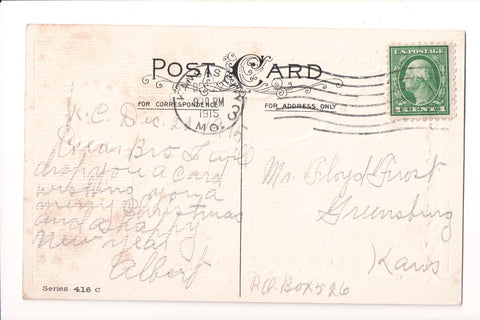 POST CARD
FOR CORRESPONDENCE
FOR ADDRESS ONLY
U.S. POSTAGE
1 CENT 1
KANSAS CITY
PM
1915
MO.
K.C. Dec. 2
Dear Bro I will
drop you a card
wishing you a
merry Christmas
and a happy
New year
Albert
Series 416 C
Mr. Floyd Frost
Greensburg
Kans
P.O. Box 526